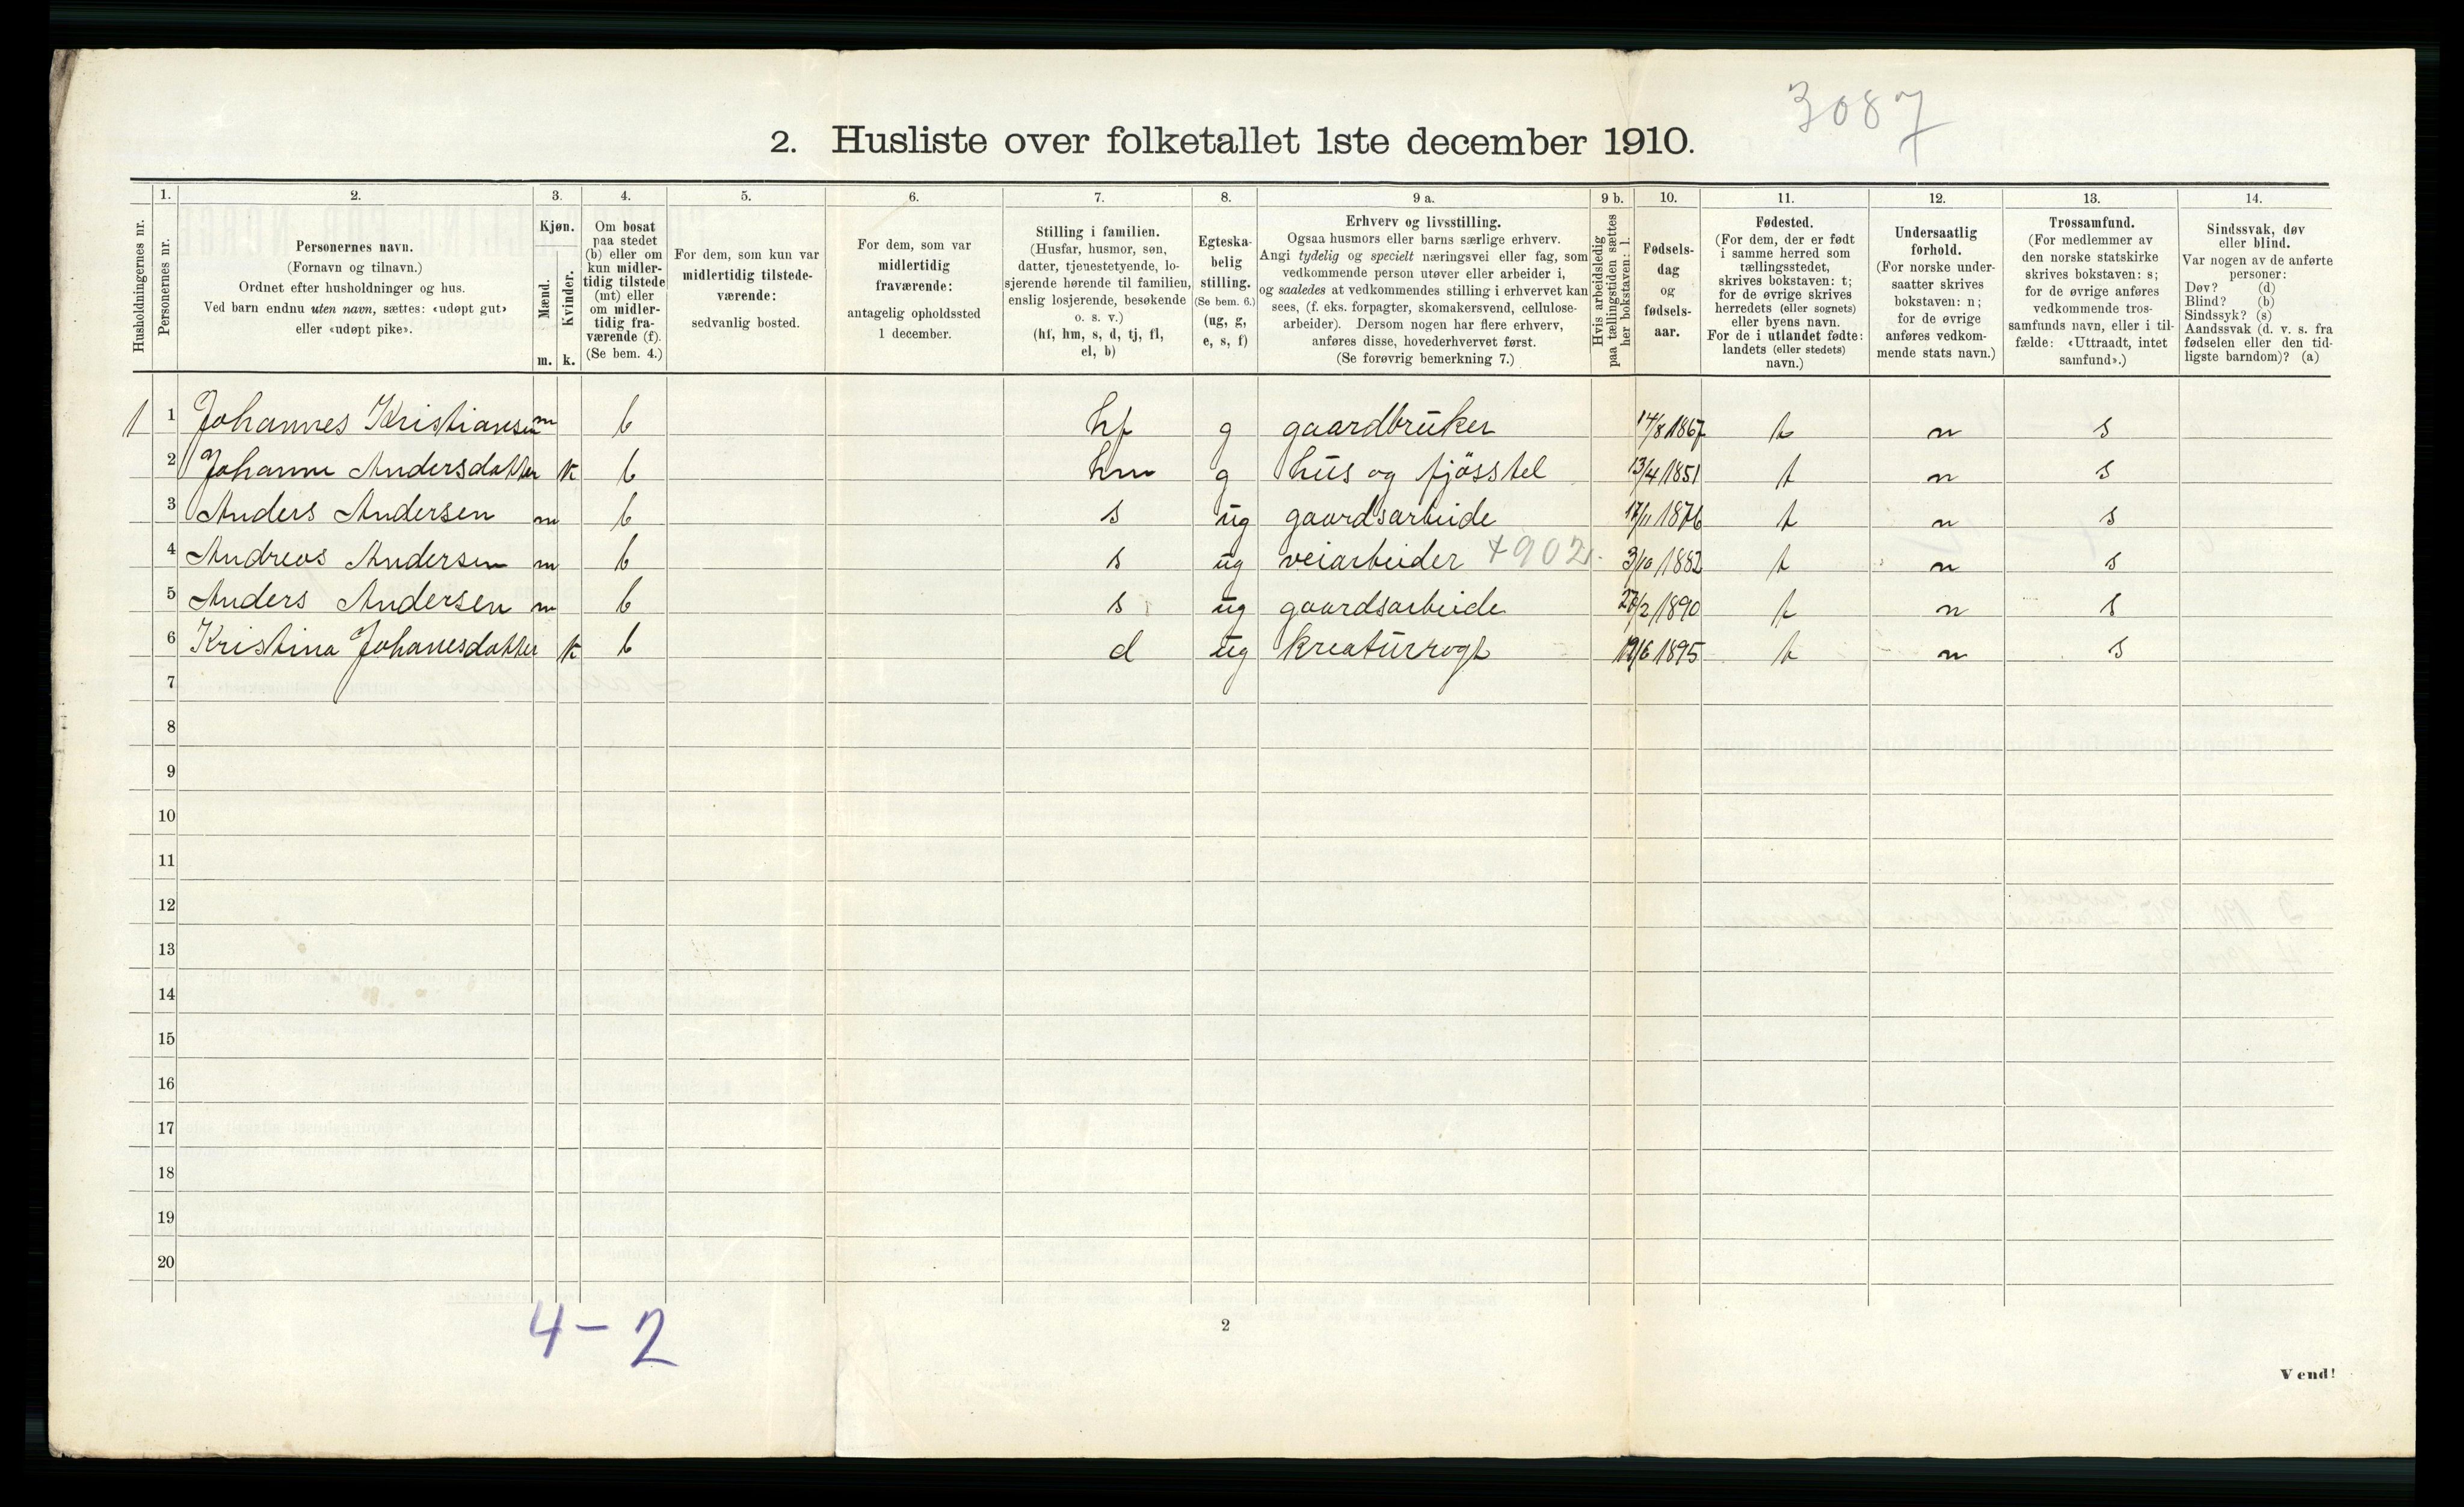 3087
2. Husliste over folketallet 1ste december 1910.
1. 2. 3. 4. 5. 6. 7. 8. 9 a. 9 b. 10. 11. 12. 13. 14.
Husholdningernes nr.
Personernes nr.
Personernes navn.
(Fornavn og tilnavn.)
Ordnet efter husholdninger og hus.
Ved barn endnu uten navn, sættes: «udøpt gut»
eller «udøpt pike».
Kjøn.
Mænd.
Kvinder.
m. k.
Om bosat
paa stedet
(b) eller om
kun midler-
tidig tilstede
(mt) eller
om midler-
tidig fra-
værende (f).
(Se bem. 4.)
For dem, som kun var
midlertidig tilstede-
værende:
sedvanlig bosted.
For dem, som var
midlertidig
fraværende:
antagelig opholdssted
1 december.
Stilling i familien.
(Husfar, husmor, søn,
datter, tjenestetyende, lo-
sjerende hørende til familien,
enslig losjerende, besøkende
o. s. v.)
(hf, hm, s, d, tj, fl,
el, b)
Egteska-
belig
stilling.
(Se bem. 6.)
(ug, g,
e, s, f)
Erhverv og livsstilling.
Ogsaa husmors eller barns særlige erhverv.
Angi tydelig og specielt næringsvei eller fag, som
vedkommende person utøver eller arbeider i,
og saaledes at vedkommendes stilling i erhvervet kan
sees, (f. eks. forpagter, skomakersvend, cellulose-
arbeider). Dersom nogen har flere erhverv,
anføres disse, hovederhvervet først.
(Se forøvrig bemerkning 7.)
Hvis arbeidsledig
paa tællingstiden sættes
her bokstaven: l.
Fødsels-
dag
og
fødsels-
aar.
Fødested.
(For dem, der er født
i samme herred som
tællingsstedet,
skrives bokstaven: t;
for de øvrige skrives
herredets (eller sognets)
eller byens navn.
For de i utlandet fødte:
landets (eller stedets)
navn.)
Undersaatlig
forhold.
(For norske under-
saatter skrives
bokstaven: n;
for de øvrige
anføres vedkom-
mende stats navn.)
Trossamfund.
(For medlemmer av
den norske statskirke
skrives bokstaven: s;
for de øvrige anføres
vedkommende tros-
samfunds navn, eller i til-
fælde: «Uttraadt, intet
samfund».)
Sindssvak, døv
eller blind.
Var nogen av de anførte
personer:
Døv? (d)
Blind? (b)
Sindssyk? (s)
Aandssvak (d. v. s. fra
fødselen eller den tid-
ligste barndom)? (a)
1 1 Johannes Kristiansen m b hf g gaardbruker 14/8 1867 t n s
2 Johanne Andersdatter k b hm g hus og fjösstel 13/4 1851 t n s
3 Anders Andersen m b s ug gaardsarbeide 17/11 1876 t n s
4 Andreas Andersen m b s ug veiarbeider +902 3/10 1882 t n s
5 Anders Andersen m b s ug gaardsarbeide 2/2 1890 t n s
6 Kristina Johanesdatter k b d ug kreaturrögt 19/6 1895 t n s
7
8
9
10
11
12
13
14
15
16
17
18
19
20
4-2
2
Vend!